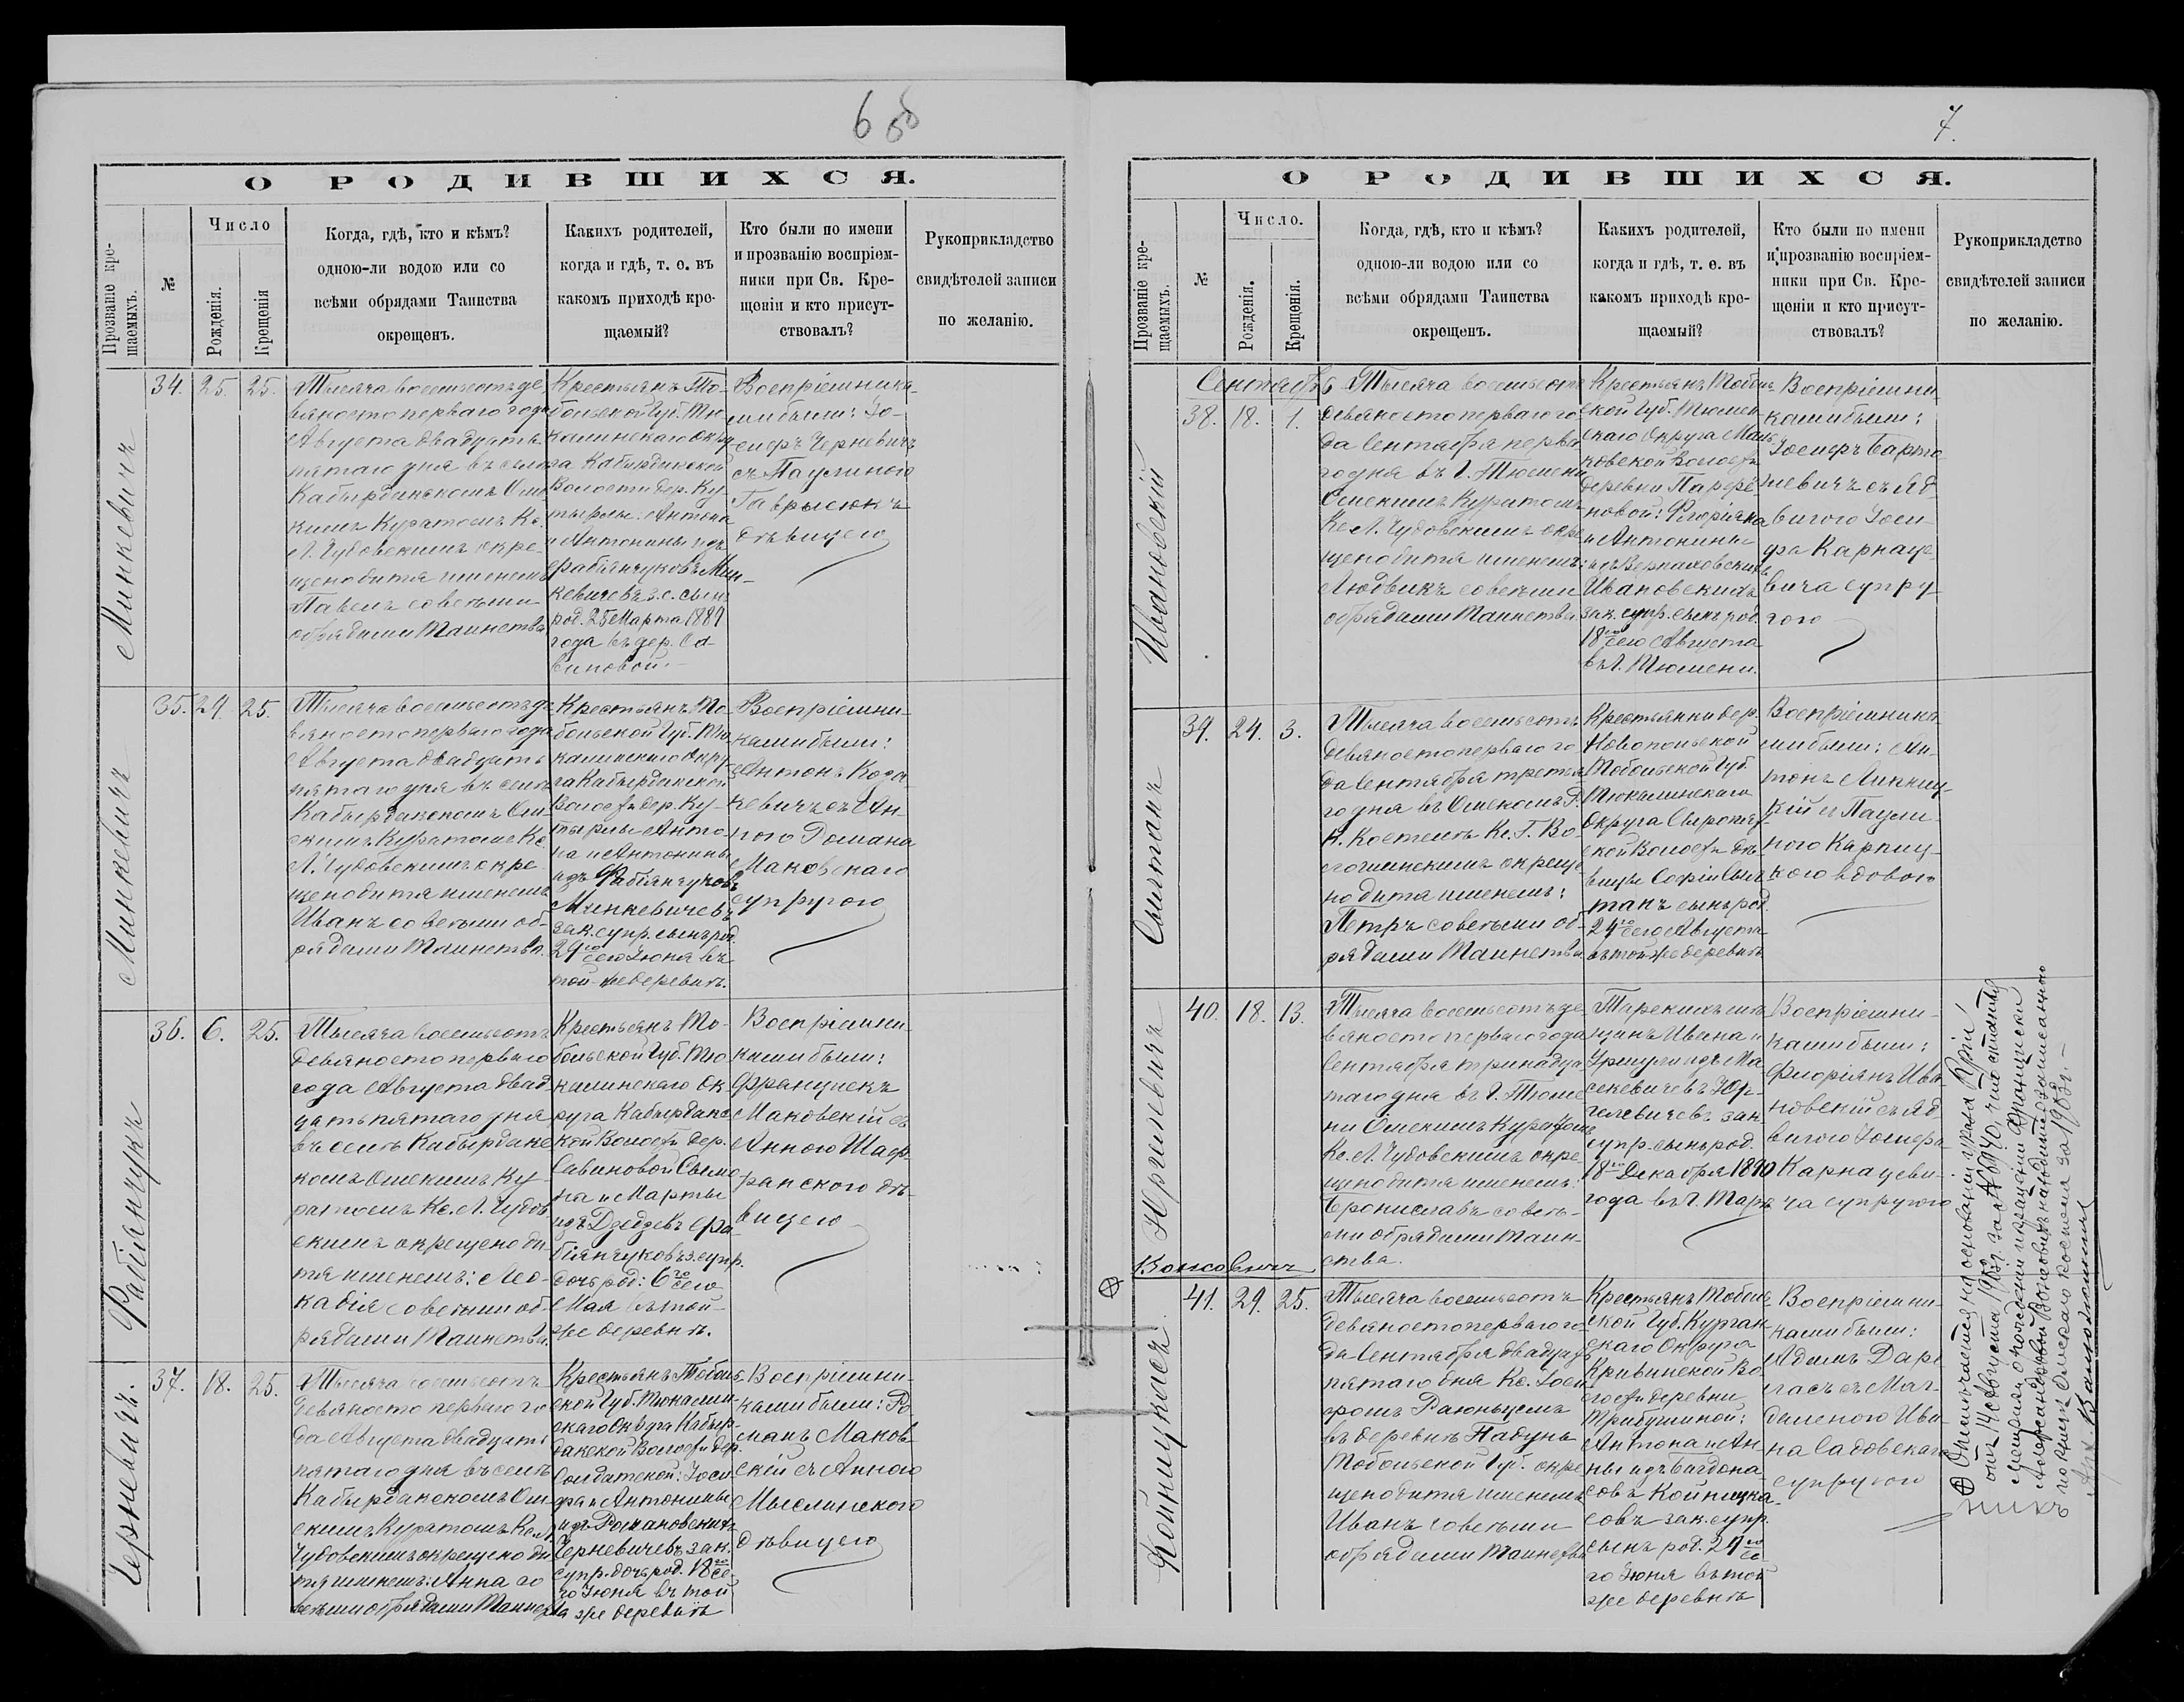 6 об
О РОДИВШИХСЯ.
Прозваніе кре-
щаемыхъ.
№
Число
Рожденія.
Крещенія
Когда, гдѣ, кто и кѣмъ?
одною-ли водою или со
всѣми обрядами Таинства
окрещенъ.
Какихъ родителей,
когда и гдѣ, т. е. въ
какомъ приходѣ кре-
щаемый?
Кто были по имени
и прозванію воспріем-
ники при Св. Кре-
щеніи и кто присут-
ствовалъ?
Рукоприкладство
свидѣтелей записи
по желанію.
Минкевичъ
34. 25. 25.
Тысяча восемьсотъ де
вяносто перваго года
Августа двадцать
пятаго дня въ селѣ
Кабырдакскомъ Ом
скимъ Куратомъ Кс.
Л. Чудовскимъ окре-
щено дитя именемъ
Павелъ со всѣми
обрядами Таинства
Крестьянъ То-
больской Губ. Тю
калинскаго Окру
га Кабырдакской
Волости дер. Ку-
тырлы Антона
и Антонины изъ
Фабіянчуковъ Мин-
кевичевъ з. с. сынъ
род. 25 Марта 1889
года въ дер. Са-
виновой.
Воспріемника-
ми были: Іо-
сифъ Черневичъ
съ Паулиною
Гаврысюкъ
дѣвицею
Минкевичъ
35. 29. 25.
Тысяча восемьсотъ де
вяносто перваго года
Августа двадцать
пятаго дня въ селѣ
Кабырдакскомъ Ом-
скимъ Куратомъ Кс.
Л. Чудовскимъ окре
щено дитя именемъ
Иванъ со всѣми об-
рядами Таинства.
Крестьянъ То-
больской Губ. Тю
калинскаго Окру-
га Кабырдакской
Волости дер. Ку-
тырлы Анто-
на и Антонины
изъ Фабіянчуковъ
Минкевичевъ
зак. супр. сынъ род.
29го сего Іюня въ
той-же деревнѣ.
Воспріемни-
ками были:
Антонъ Коза
кевичъ съ Ан-
ною Романа
Маковскаго
супругою
Фабіянчукъ
36. 6. 25.
Тысяча восемьсотъ
девяносто перваго
года Августа двад
цать пятаго дня
въ селѣ Кабырдакс
комъ Омскимъ Ку-
ратомъ Кс. Л. Чудов
скимъ окрещено ди-
тя именемъ: Лео-
кадія со всѣми об-
рядами Таинства.
Крестьянъ То-
больской Губ. Тю
калинскаго Ок
руга Кабырдакс
кой Волости дер.
Савиновой Сымо
на и Марты
изъ Дзедзекъ Фа-
біянчуковъ з. супр.
дочь род: 6го сего
Мая въ той-
же деревнѣ.
Воспріемни-
ками были:
Францишекъ
Маковскій съ
Анною Шаф-
ранскою дѣ-
вицею
Черневичъ.
37. 18. 25.
Тысяча восемьсотъ
девяносто перваго го
да Августа двадцать
пятаго дня въ селѣ
Кабырдакскомъ Ом-
скимъ Куратомъ Кс. Л.
Чудовскимъ окрещено ди
тя именемъ: Анна со
всѣми обрядами Таинст
ва
Крестьянъ Тоболь
ской Губ. Тюкалин-
скаго Округа Кабыр-
дакской Волости дер.
Солдатской: Іоси
фа и Антонины
изъ Романовскихъ
Черневичевъ зак.
супр. дочь род. 18го се
го Іюня въ той
же деревнѣ
Воспріемни-
ками были: Ро
манъ Маков-
скій съ Анною
Мыслинскою
дѣвицею
7.
О РОДИВШИХСЯ.
Прозваніе кре-
щаемыхъ.
№
Число.
Рожденія.
Крещенія.
Когда, гдѣ, кто и кѣмъ?
одною-ли водою или со
всѣми обрядами Таинства
окрещенъ.
Какихъ родителей,
когда и гдѣ, т. е. въ
какомъ приходѣ кре-
щаемый?
Кто были по имени
и прозванію воспріем-
ники при Св. Кре-
щеніи и кто присут-
ствовалъ?
Рукоприкладство
свидѣтелей записи
по желанію.
Ивановскій
Сентябрь
38. 18. 1.
Тысяча восемьсотъ
девяносто перваго го
да Сентября перва
го дня въ Г. Тюмени
Омскимъ Куратомъ
Кс. Л. Чудовскимъ окре
щено дитя именемъ:
Людвикъ со всѣми
обрядами Таинства
Крестьянъ Тоболь
ской Губ. Тюмен
скаго Округа
ковской Волости
деревни Парфе
новой: Флоріяна
и Антонины
изъ Верпаховскихъ
Ивановскихъ
зак. супр. сынъ род.
18го сего Августа
въ Г. Тюмени.
Воспріемни
ками были:
Іосифъ Барто
шевичъ съ Яд
вигою Іоси-
фа Карнаце
вича супру
гою
Сымтанъ
39. 24. 3.
Тысяча восемьсотъ
девяносто перваго го
да Сентября третья
го дня въ Омскомъ Р.
К. Костелѣ Кс. Г. Во
окреще
но дитя именемъ:
Петръ со всѣми об-
рядами Таинства
Крестьянки дер.
Новопольской
Тобольской Губ.
Тюкалинскаго
Округа Сыропят
ской Волости дѣ-
вицы Софіи Сым
танъ сынъ род.
24го сего Августа
въ той же деревнѣ
Воспріемника
ми были: Ан-
тонъ Липниц
кій съ Паули-
ною Карпиц-
кою вдовою
Юргилевичъ
40. 18. 13.
Тысяча восемьсотъ де
вяносто перваго года
Сентября тринадца
таго дня въ Г. Тюме
ни Омскимъ Куратомъ
Кс. Л. Чудовскимъ окре
щено дитя именемъ:
Брониславъ со всѣ-
ми обрядами Таин-
ства.
Тарскихъ мѣ
щанъ Ивана и
Уршули изъ Ма
секевичевъ Юр-
гилевичевъ зак
супр. сынъ род.
18го Декабря 1890
года въ Г. Тарѣ
Воспріемни-
ками были:
Флоріянъ Ива
новскій съ Яд
вигою Іосифа
Карнацеви-
ча супругою
Консовичъ
Койницкасъ
41. 29. 25.
Тысяча восемьсотъ
девяносто перваго го
да Сентября двадцать
пятаго дня Кс. Іоси
фомъ Раюньцемъ
въ деревнѣ Падунъ
Тобольской Губ. окре
щено дитя именемъ
Иванъ со всѣми
обрядами Таинства
Крестьянъ Тоболь
ской Губ. Курган
скаго Округа
Кривинской Во
лости деревни
Трибушиной:
Антона и Ан-
ны изъ Багдона
совъ Койницка-
совъ зак. супр.
сынъ род. 29го се
го Іюня въ той
же деревнѣ
Воспріемни-
ками были:
Адамъ Дарг
ласъ съ Маг-
даленою Ива-
на Садовскаго
супругою
на основаніи указа
отъ 14 Августа 1903 г. за № 6940, что